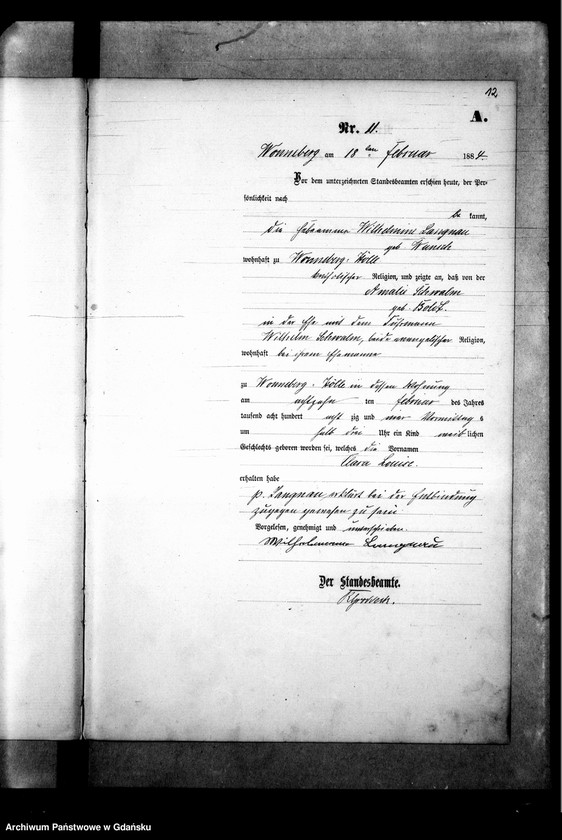 12
A.
Nr. 11.
Wonneberg am 18ten Februar 1884.
Vor dem unterzeichneten Standesbeamten erschien heute, der Per-
sönlichkeit nach
be kannt,
die Hebeamme Wilhelmine Langnau
geb Wunsch
wohnhaft zu Wonneberg-Hölle
katholischer Religion, und zeigte an, daß von der
Amalie Schwalm
geb. Boldt.
in der Ehe mit dem Fuhrmann
Wilhelm Schwalm, beide evangelischer Religion,
wohnhaft bei ihrem Ehemanne
zu Wonneberg-Hölle in dessen Wohnung
am achtzehn ten Februar des Jahres
tausend acht hundert acht zig und vier Vormittag s
um halb drei Uhr ein Kind weib lichen
Geschlechts geboren worden sei, welches die Vornamen
Clara Louise.
erhalten habe
p. Langnau erklärt bei der Entbindung
zugegen gewesen zu sein
Vorgelesen, genehmigt und unterschrieben.
Wilhelmine
Der Standesbeamte.
Archiwum Państwowe w Gdańsku